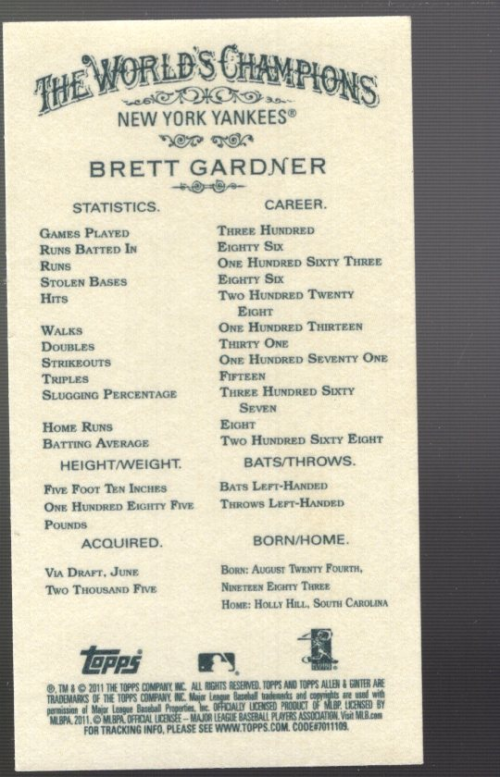 THE WORLD'S CHAMPIONS
NEW YORK YANKEES®
BRETT GARDNER
STATISTICS. CAREER.
GAMES PLAYED THREE HUNDRED
RUNS BATTED IN EIGHTY SIX
RUNS ONE HUNDRED SIXTY THREE
STOLEN BASES EIGHTY SIX
HITS TWO HUNDRED TWENTY
EIGHT
WALKS ONE HUNDRED THIRTEEN
DOUBLES THIRTY ONE
STRIKEOUTS ONE HUNDRED SEVENTY ONE
TRIPLES FIFTEEN
SLUGGING PERCENTAGE THREE HUNDRED SIXTY
SEVEN
HOME RUNS EIGHT
BATTING AVERAGE TWO HUNDRED SIXTY EIGHT
HEIGHT/WEIGHT. BATS/THROWS.
FIVE FOOT TEN INCHES BATS LEFT-HANDED
ONE HUNDRED EIGHTY FIVE THROWS LEFT-HANDED
POUNDS
ACQUIRED. BORN/HOME.
VIA DRAFT, JUNE BORN: AUGUST TWENTY FOURTH,
TWO THOUSAND FIVE NINETEEN EIGHTY THREE
HOME: HOLLY HILL, SOUTH CAROLINA
Topps
®, TM & © 2011 THE TOPPS COMPANY, INC. ALL RIGHTS RESERVED. TOPPS AND TOPPS ALLEN & GINTER ARE
TRADEMARKS OF THE TOPPS COMPANY, INC. Major League Baseball trademarks and copyrights are used with
permission of Major League Baseball Properties, Inc. OFFICIALLY LICENSED PRODUCT OF MLBP. LICENSED BY
MLBPA, 2011. © MLBPA, OFFICIAL LICENSEE – MAJOR LEAGUE BASEBALL PLAYERS ASSOCIATION. Visit MLB.com
FOR TRACKING INFO, PLEASE SEE WWW.TOPPS.COM. CODE#7011109.